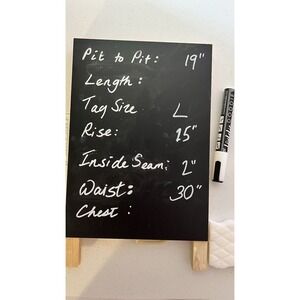 Pit to Pit: 19"
Length:
Tag Size L
Rise: 15"
Inside Seam: 2"
Waist: 30"
Chest: